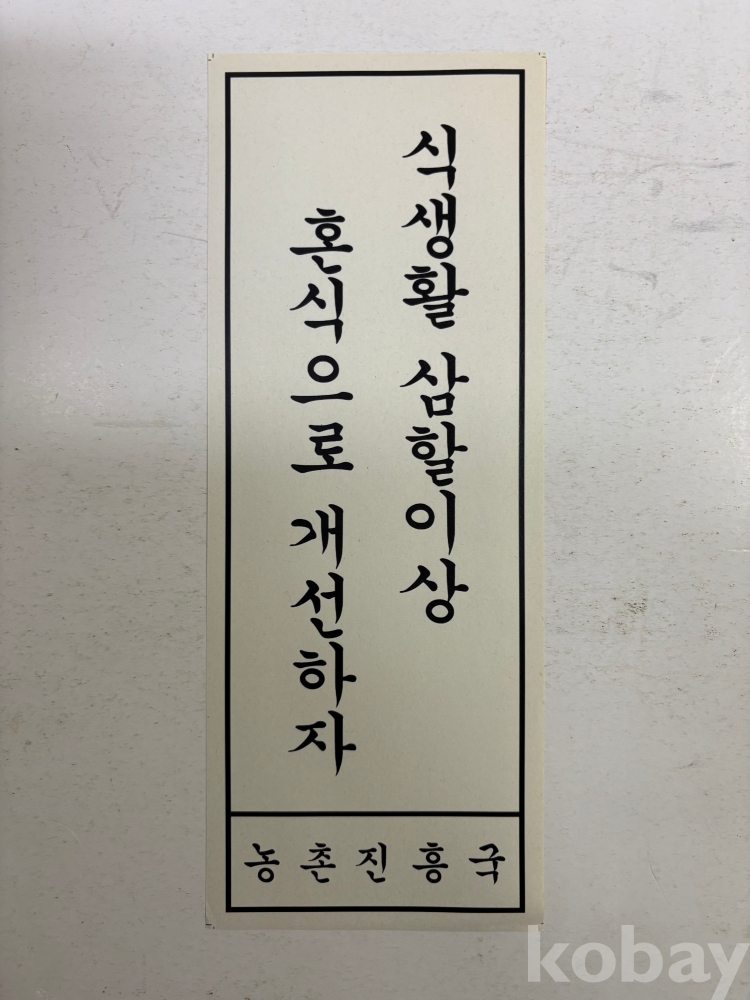 식생활 삼할이상
혼식으로 개선하자
농촌진흥국
kobay